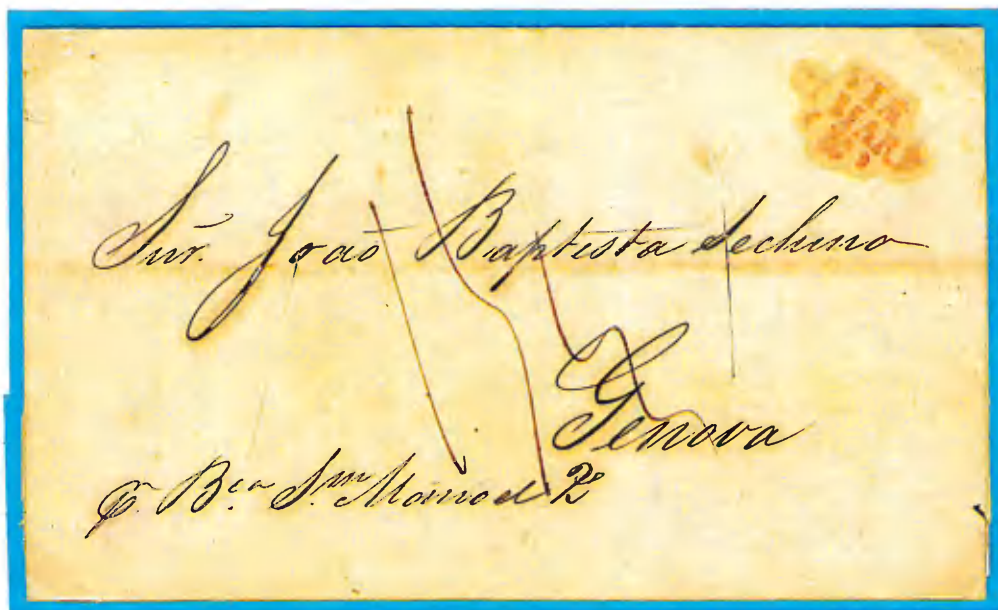 Snr. Joao Baptista
Genova
p. B.ca S.m Manoel 2º